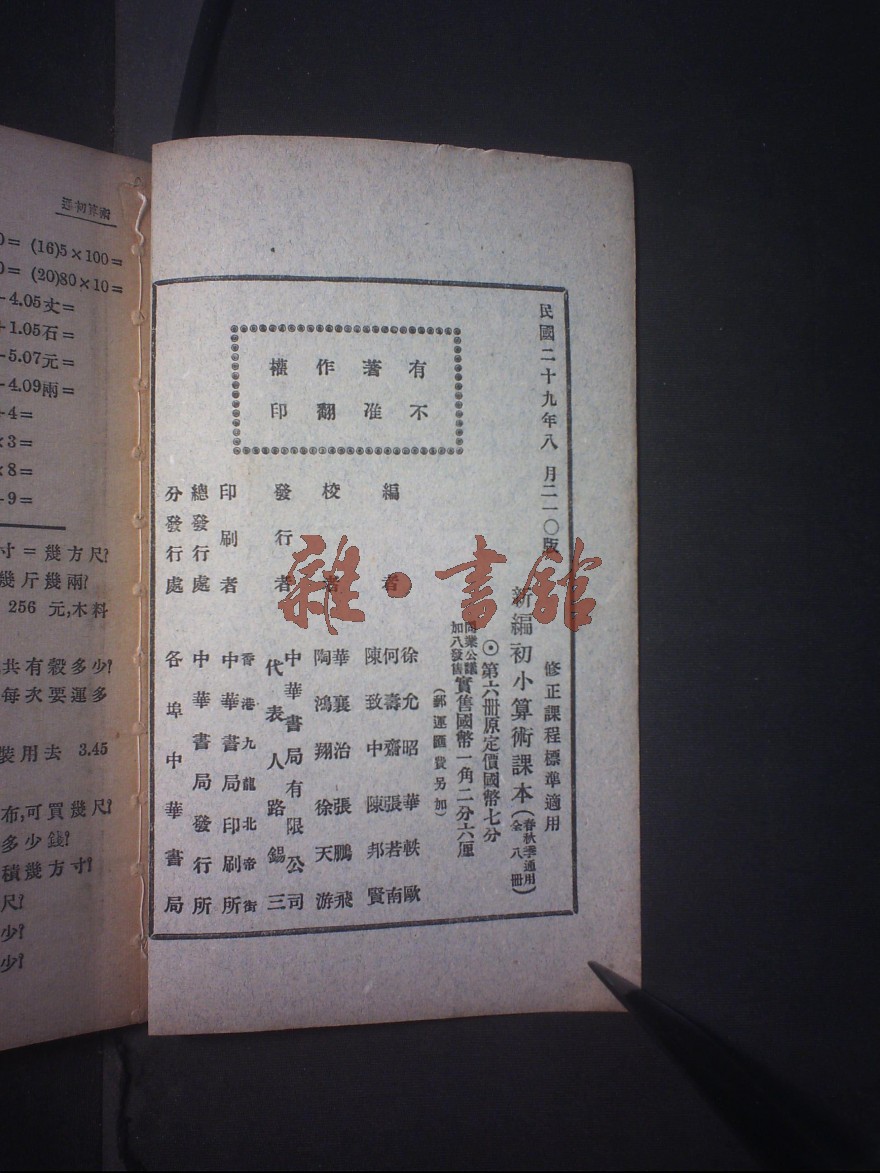 民國二十九年八月二一〇版
修正課程標準適用
新編初小算術課本(春秋季通用 全八冊)
⊙第六冊原定價國幣七分
同業公議 加八發售 實售國幣一角二分六厘
(郵運匯費另加)
有著作權
不准翻印
編者
徐允昭 華軼歐
何壽齋 張若南
陳致中 陳邦賢
校者
華襄治 張鵬飛
陶鴻翔 徐天游
發行者
中華書局有限公司
代表人路錫三
印刷者
香港九龍北帝街
中華書局印刷所
總發行處
中華書局發行所
分發行處
各埠中華書局
雜·書館
(16)5×100=
(20)80×10=
4.05丈=
1.05石=
5.07元=
4.09兩=
4=
3=
8=
9=
寸=幾方尺?
幾斤幾兩?
256 元,木料
共有穀多少?
每次要運多
裝用去 3.45
布,可買幾尺?
多少錢?
積幾方寸?
尺?
少?
少?